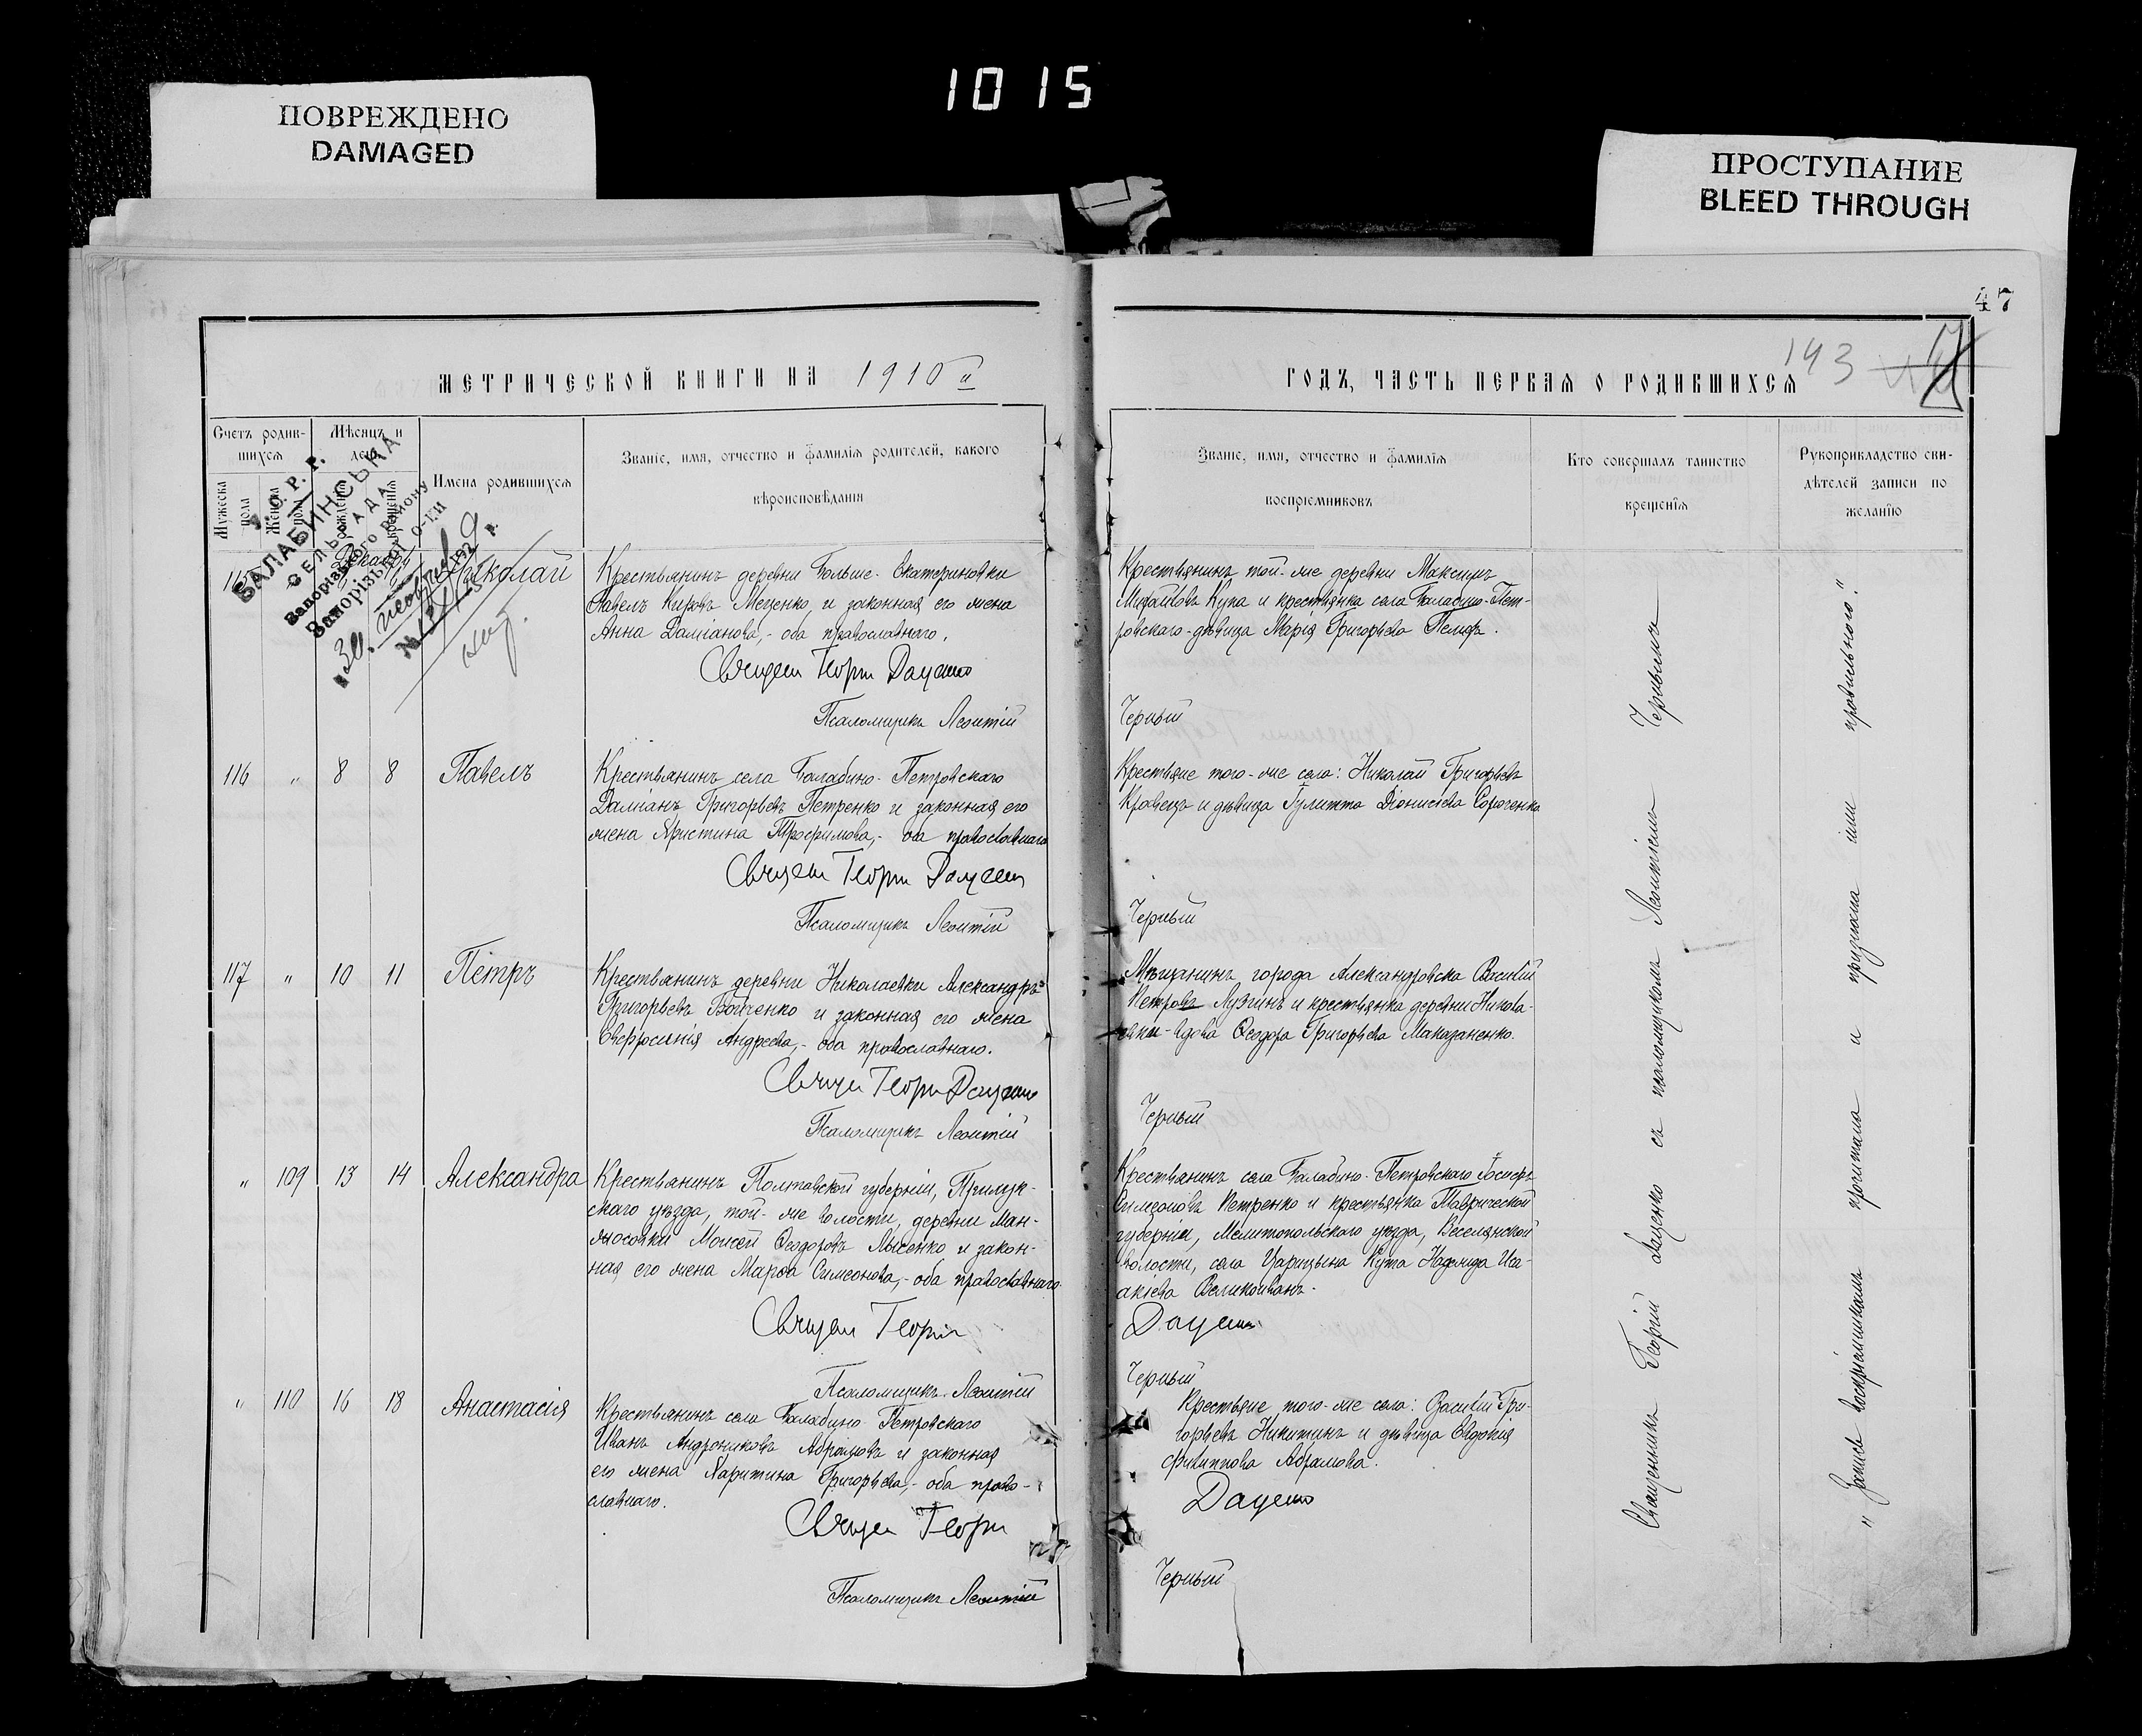 1015
ПОВРЕЖДЕНО
DAMAGED
ПРОСТУПАНИЕ
BLEED THROUGH
47
143
МЕТРИЧЕСКОЙ КНИГИ НА 1910й
ГОДЪ, ЧАСТЬ ПЕРВАЯ О РОДИВШИХСЯ
Счетъ родив-
шихся
Мужеска
пола
Женска
пола
Мѣсяцъ и
день
рожденія
крещенія
Имена родившихся
Званіе, имя, отчество и фамилія родителей, какого
вѣроисповѣданія
Званіе, имя, отчество и фамилія
воспріемниковъ
Кто совершалъ таинство
крещенія
Рукоприкладство сви-
дѣтелей записи по
желанію
С. Р. Р.
БАЛАБИНСЬКА
СЕЛЬРАДА
Запорізького району
Запорізької О-ги
192 р.
Николай
Крестьянинъ деревни Больше-Екатериновки
Павелъ Кировъ Меценко, и законная его жена
Анна Даміанова,- оба православнаго.
Священ Георги Даценко
Псаломщикъ Леонтій
Крестьянинъ той-же деревни Максимъ
Михайловъ Купа и крестьянка села Балабино-Пет-
ровскаго-дѣвица Марія Григорьева
Черный
116 " 8 8 Павелъ
Крестьянинъ села Балабино-Петровскаго
Даміанъ Григорьевъ Петренко и законная его
жена Христина Трофимова,- оба православнаго
Священ Георги Даценко
Псаломщикъ Леонтій
Крестьяне того-же села: Николай Григорьевъ
Кравецъ и дѣвица Іулитта Діонисіева Сороченко
Черный
117 " 10 11 Петръ
Крестьянинъ деревни Николаевки Александръ
Григорьевъ Бойченко и законная его жена
Евфросинія Андреева,- оба православнаго.
Священ Георги Даценко
Псаломщикъ Леонтій
Мѣщанинъ города Александровска Василій
Петровъ Лузгинъ и крестьянка деревни Никола-
евки-вдова Ѳеодора Григорьева Маказаненко.
Черный
" 109 13 14 Александра
Крестьянинъ Полтавской губерніи, Прилук-
скаго уѣзда, той-же волости, деревни Ман-
жосовки Моисей Ѳеодоровъ Лысенко и закон-
ная его жена Марѳа Симеонова,- оба православнаго
Священ Георги
Псаломщикъ Леонтій
Крестьянинъ села Балабино-Петровскаго Іосифъ
Симеоновъ Петренко и крестьянка Таврической
губерніи, Мелитопольскаго уѣзда, Веселянской
волости, села Царицына Кута Надежда Иса-
акіева Великоиванъ.
Даценко
Черный
" 110 16 18 Анастасія
Крестьянинъ села Балабино-Петровскаго
Иванъ Андрониковъ Абрамовъ и законная
его жена Харитина Григорьева,- оба право-
славнаго.
Священ Георги
Псаломщикъ Леонтій
Крестьяне того-же села: Василій Гри-
горьевъ Никитинъ и дѣвица Евдокія
Филиппова Абрамова.
Даценко
Черный
Священникъ Георгій Даценко съ псаломщикомъ Леонтіемъ Чернымъ
"Запись воспріемникамъ прочитана и признана ими правильною".